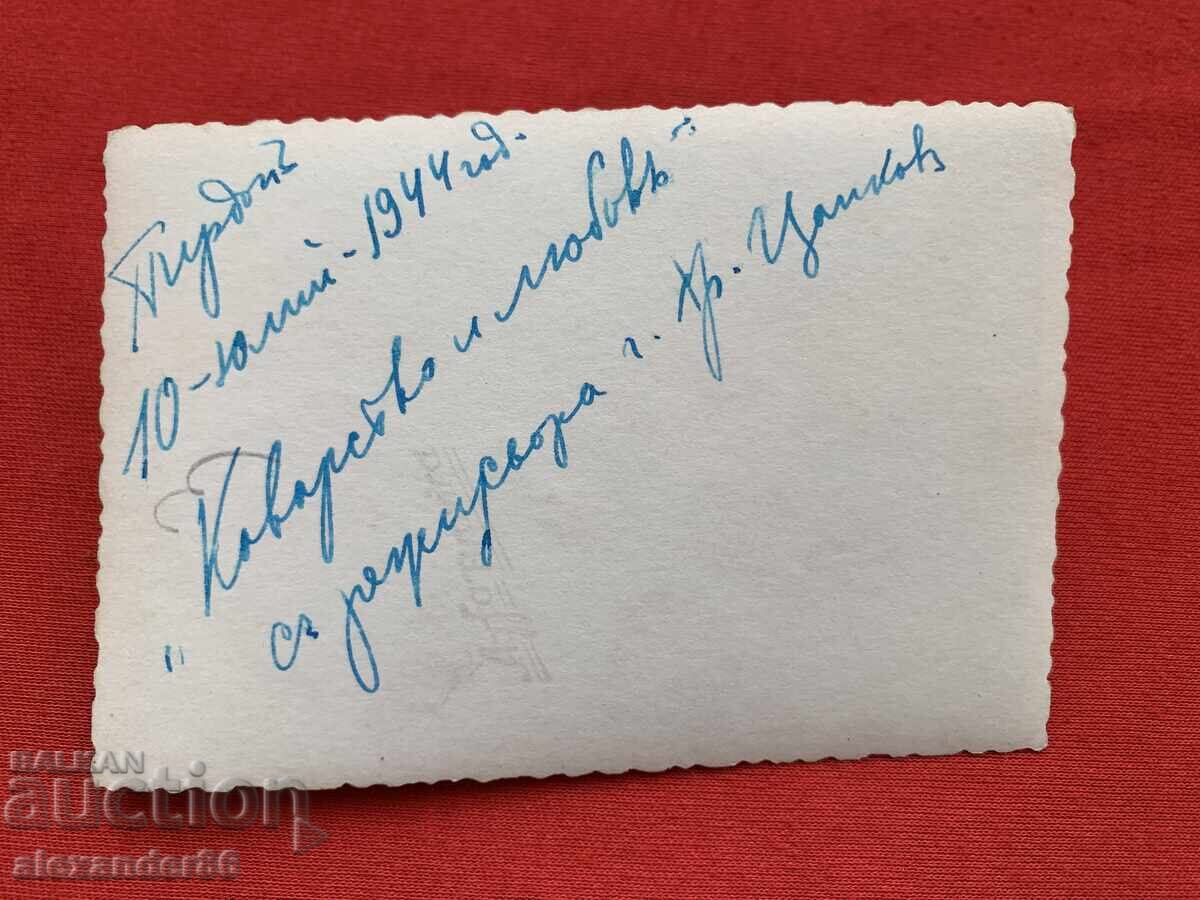 Пирдопъ
10-юлий-1944 год.
"Коварство и любовь"
съ режисьора г. Хр. Цанков
BALKAN
auction
alexander86